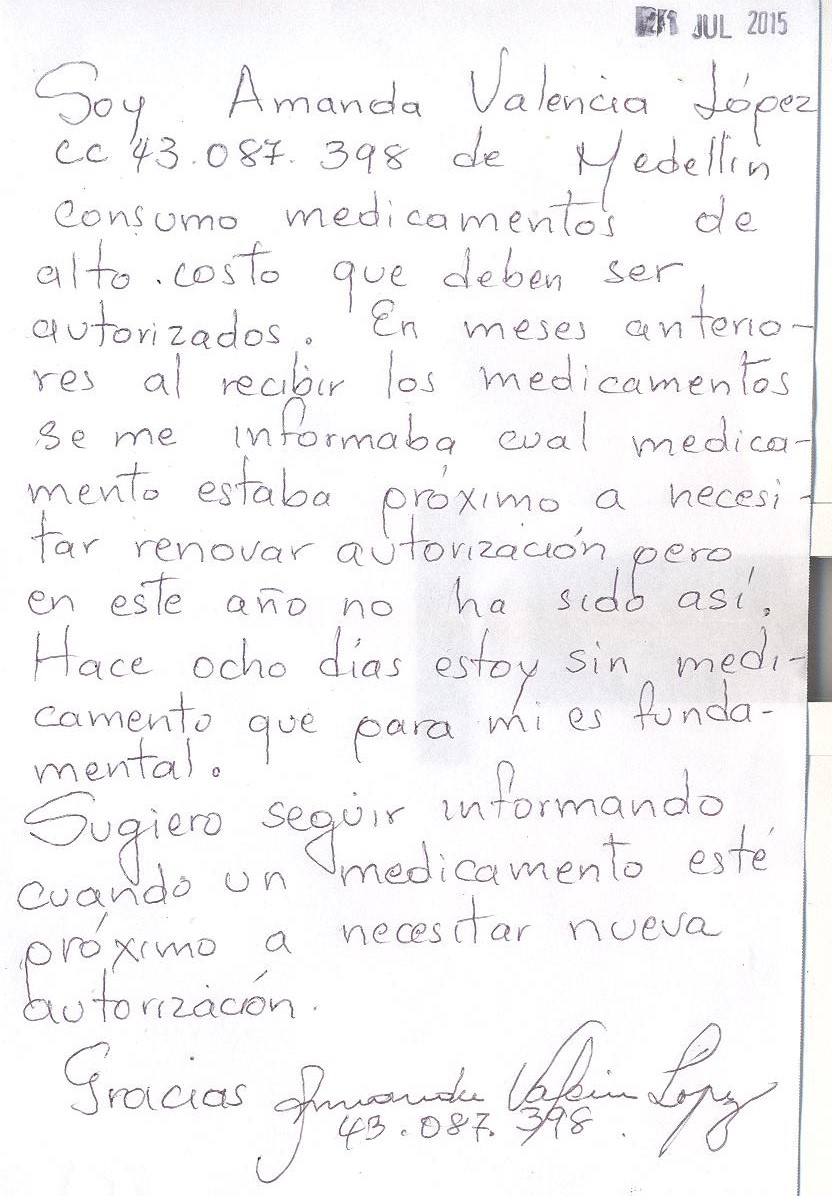 JUL 2015
Soy Amanda Valencia López
cc 43.087.398 de Medellín
consumo medicamentos de
alto.costo que deben ser
autorizados. En meses anterio-
res al recibir los medicamentos
se me informaba cual medica-
mento estaba próximo a necesi-
tar renovar autorización pero
en este año no ha sido así.
Hace ocho días estoy sin medi-
camento que para mi es funda-
mental.
Sugiero seguir informando
cuando un medicamento esté
próximo a necesitar nueva
autorización.
Gracias Amanda Valencia López
43.087.398.